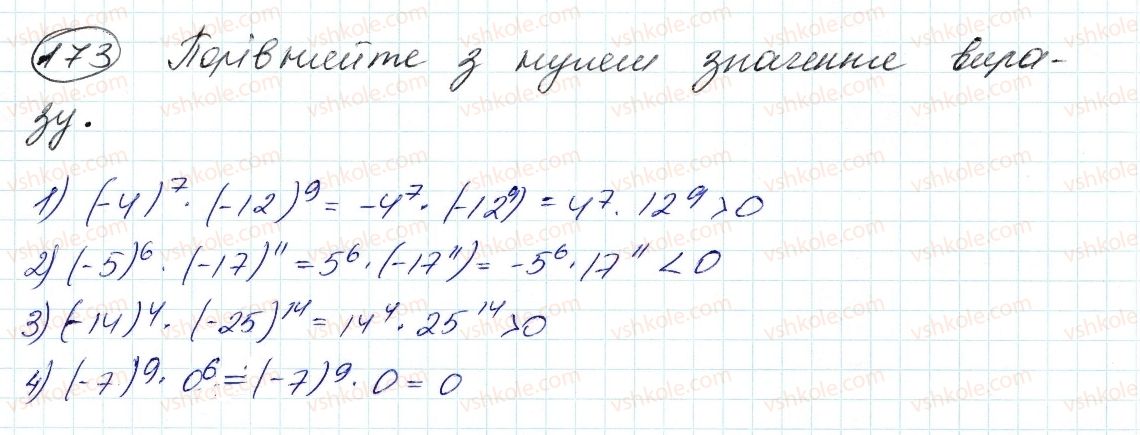 173 Порівняйте з нулем значення вира-
зу.
1) (-4)⁷ · (-12)⁹ = -4⁷ · (-12⁹) = 4⁷ · 12⁹ > 0
2) (-5)⁶ · (-17)¹¹ = 5⁶ · (-17¹¹) = -5⁶ · 17¹¹ < 0
3) (-14)⁴ · (-25)¹⁴ = 14⁴ · 25¹⁴ > 0
4) (-7)⁹ · 0⁶ = (-7)⁹ · 0 = 0